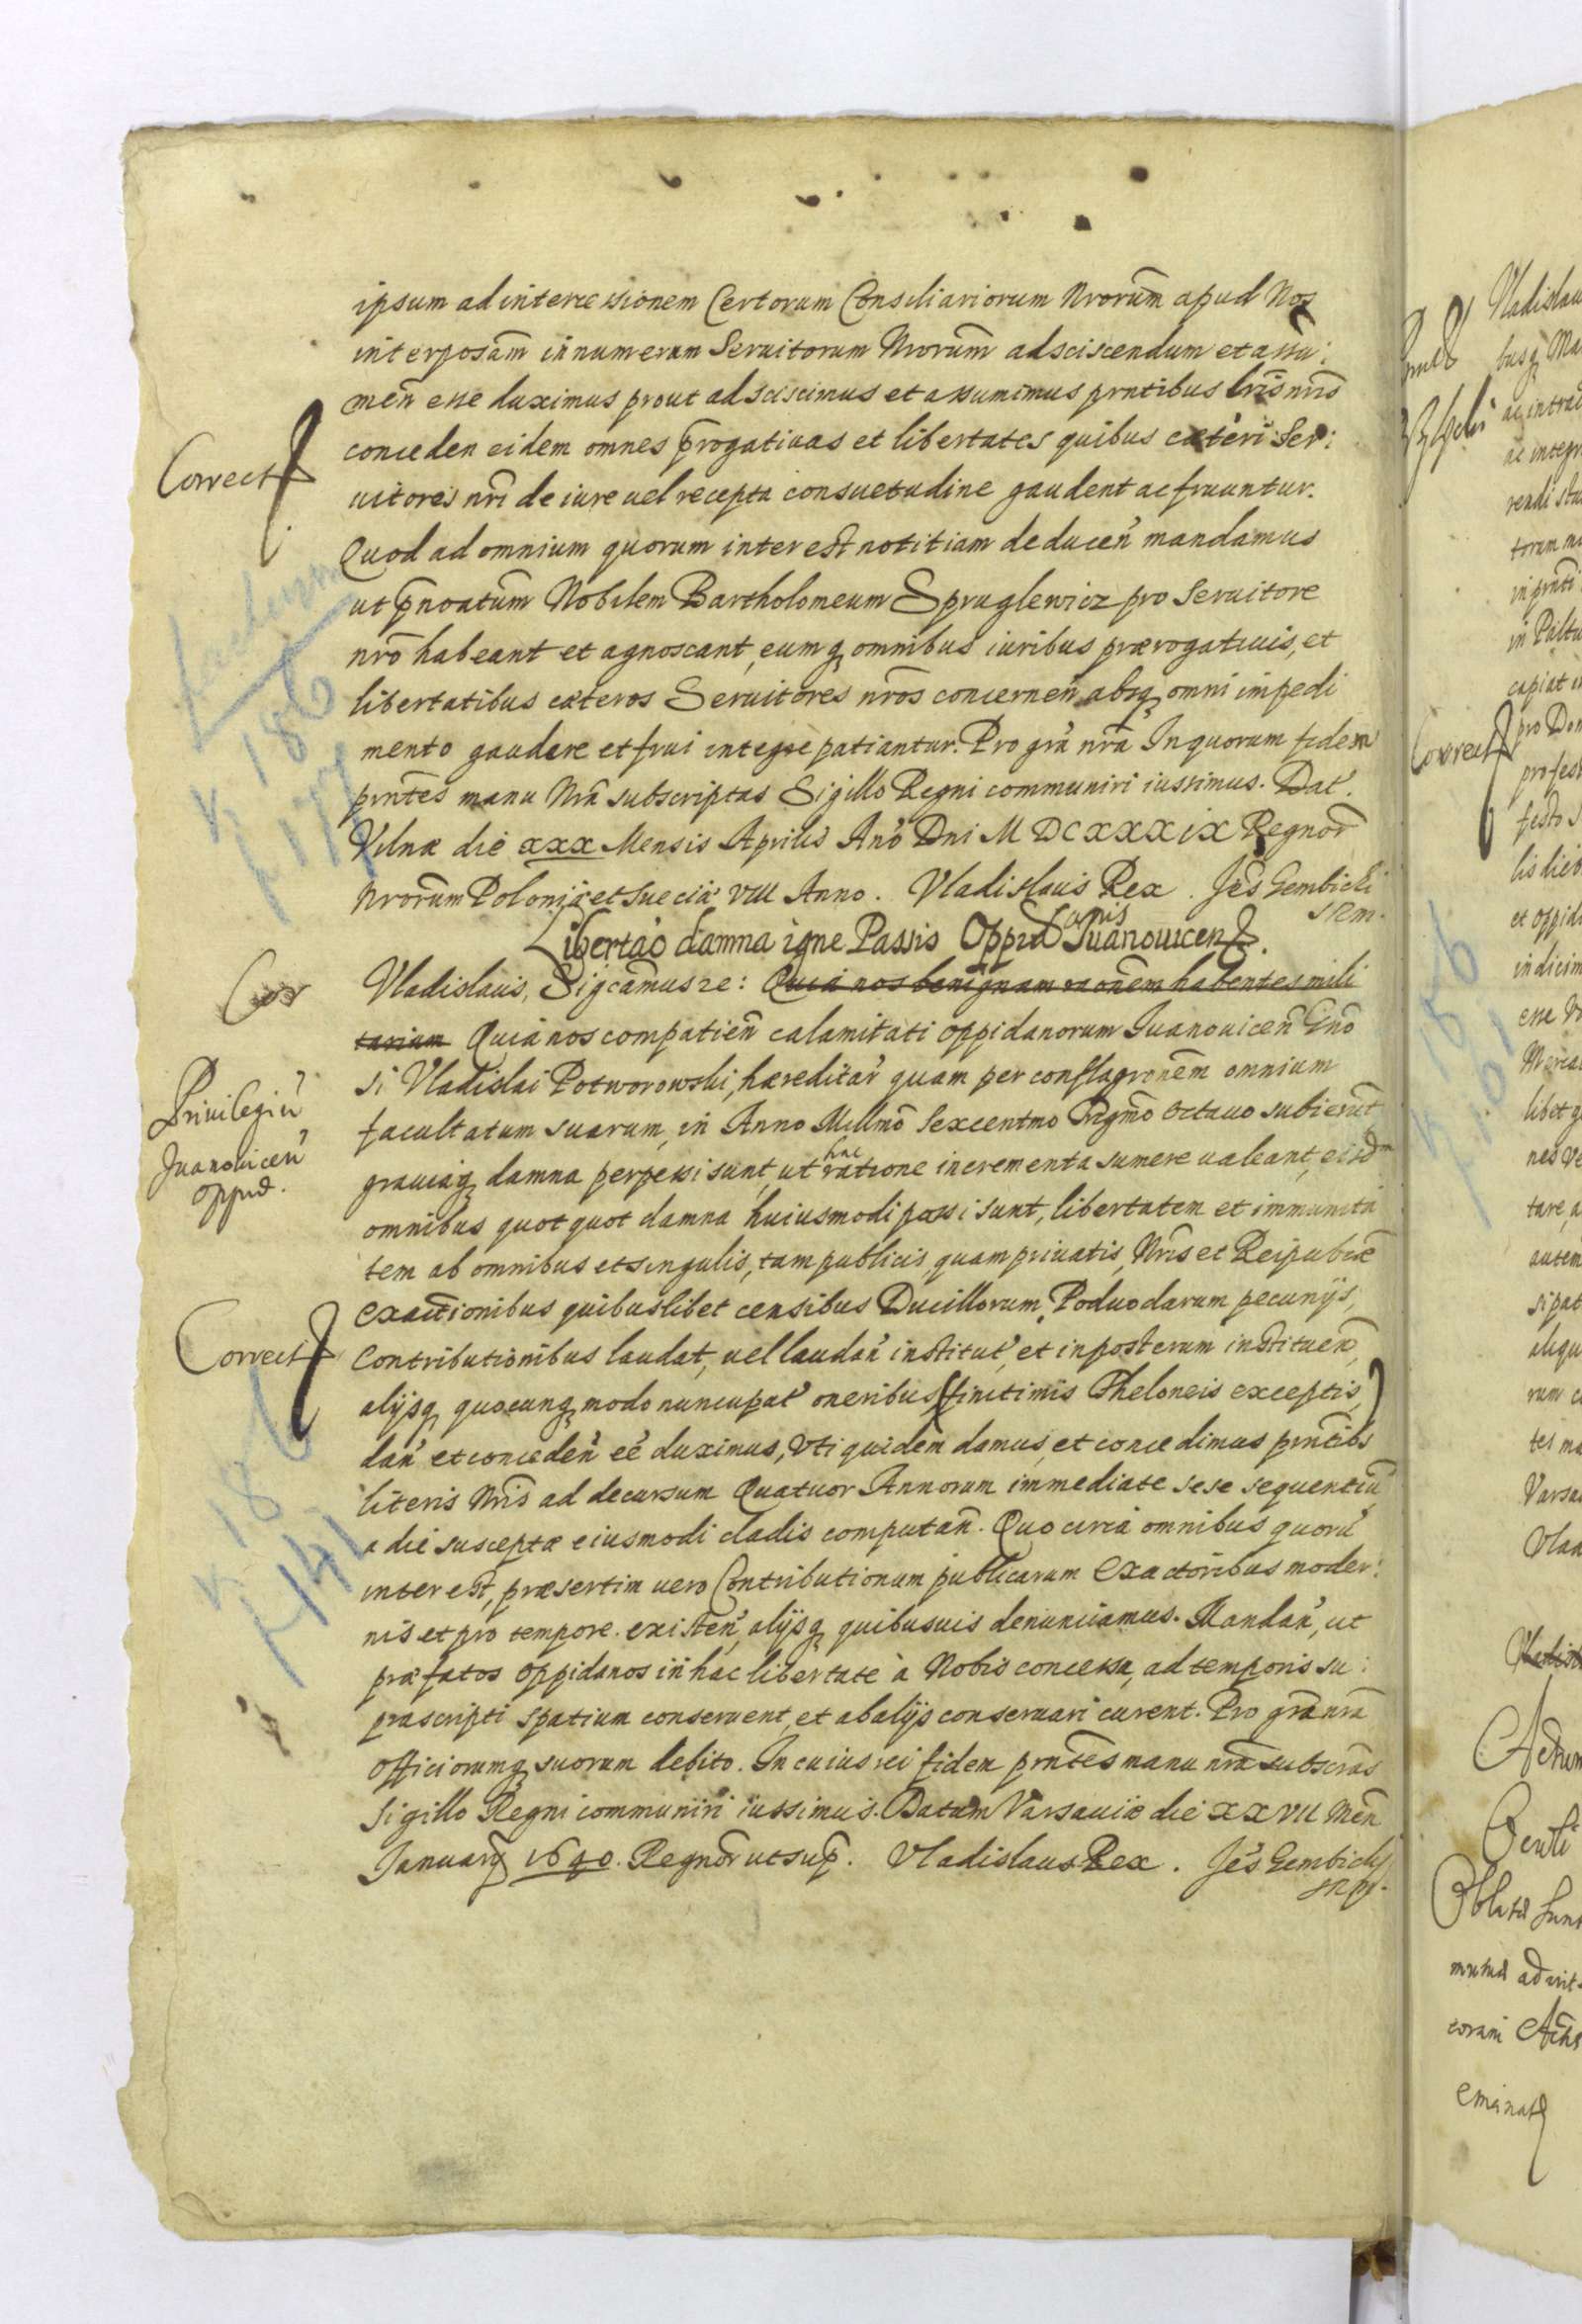 ipsum ad intercessionem Certorum Consiliariorum Nrorum apud Nos
interposam in numerum Servitorum Nrorum adsciscendum et assu:
men esse duximus prout adsciscimus et assumimus pntibus lris nris
Correct
conceden eidem omnes progativas et libertates quibus cæteri Ser:
uitores nri de iure uel recepta consuetudine gaudent ac fruuntur.
Quod ad omnium quorum interest notitiam deducen mandamus
ut pnoatum Nobilem Bartholomeum Spruglewicz pro Seruitore
nro habeant et agnoscant, eumq omnibus iuribus prærogatiuis, et
libertatibus cæteros Seruitores nros concernen absq omni impedi
mento gaudere et frui integre patiantur. Pro gra nra In quorum fidem
pntes manu Nra subscriptas Sigillo Regni communiri iussimus. Dat.
Vilnæ die xxx Mensis Aprilis Ano Dni MDCXXXIX Regnor
Nrorum Poloniæ et Sueciæ VIII Anno. Vladislaus Rex. Jes Gembicki
SRM.
Libertao damna igne Passis Oppidanis Iuanouicen.
Cor
Vladislaus, Sigcamus 2e: Quia nos benignam raonem habentes mili
tarium Quia nos compatien calamitati oppidanorum Iuanouicen Gno
Priuilegiu
Juanouicen
oppid.
si Vladislai Potworowski, hæreditar quam per conflagronem omnium
facultatum suarum, in Anno Millmo Sexcentmo Trigmo octauo subierut
grauiaq damna perpessi sunt, ut hac ratione incrementa sumere ualeant, eisdm
omnibus quotquot damna huiusmodi passi sunt, libertatem et immunita
tem ab omnibus et singulis, tam publicis quam priuatis, Nris et Reipubcæ
exactionibus quibuslibet censibus Ducillorum, Poduodarum pecunijs,
Correct
Contributionibus laudat, uel laudan institut, et inposterum instituen,
alijsq quocunq modo nuncupat oneribus (finitimis Theloneis exceptis,)
dan et conceden ee duximus, Vti quidem damus, et concedimus pntibs
literis Nris ad decursum Quatuor Annorum immediate sese sequentiu
a die susceptæ eiusmodi cladis computan. Quo circa omnibus quoru
interest, præsertim uero Contributionum publicarum Exactoribus moder:
nis et pro tempore existen, alijsq quibusuis denunciamus. Mandan, ut
præfatos oppidanos in hac libertate à Nobis concessa, ad temporis su:
prascripti spatium conseruent, et ab alijs conseruari curent. Pro gra nra
officiorumq suorum debito. In cuius rei fidem pntes manu nra subscras
Sigillo Regni communiri iussimus. Datum Varsauiæ die XXVII Men
Januarij 1640. Regnor ut sup. Vladislaus Rex. Jes Gembicki
SRM.